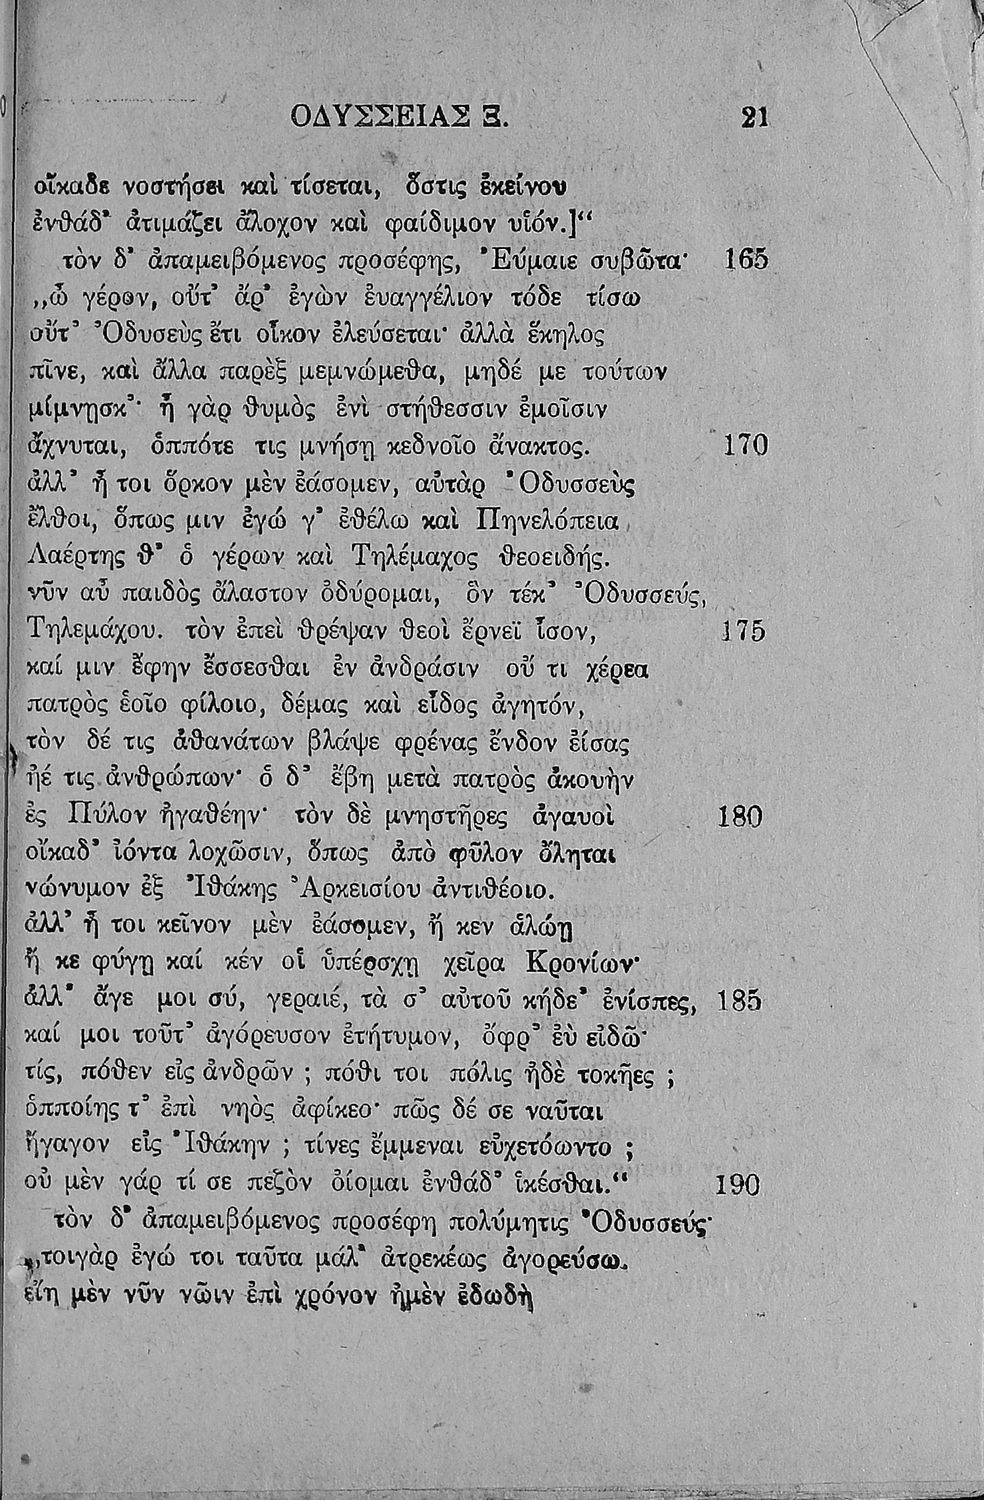 ΟΔΥΣΣΕΙΑΣ Ξ. 21
οἴκαδε νοστήσει καὶ τίσεται, ὅστις ἐκείνου
ἐνθάδ᾽ ἀτιμάζει ἄλοχον καὶ φαίδιμον υἱόν.]“
τὸν δ᾽ ἀπαμειβόμενος προσέφης, Ἐύμαιε συβῶτα· 165
„ὦ γέρον, οὔτ᾽ ἄρ᾽ ἐγὼν ἐυαγγέλιον τόδε τίσω
οὔτ᾽ Ὀδυσεὺς ἔτι οἶκον ἐλεύσεται· ἀλλὰ ἕκηλος
πῖνε, καὶ ἄλλα παρὲξ μεμνώμεθα, μηδέ με τούτων
μίμνῃσκ᾽· ἦ γὰρ θυμὸς ἐνὶ στήθεσσιν ἐμοῖσιν
ἄχνυται, ὁππότε τις μνήσῃ κεδνοῖο ἄνακτος. 170
ἀλλ᾽ ἦ τοι ὅρκον μὲν ἐάσομεν, αὐτὰρ Ὀδυσσεὺς
ἔλθοι, ὅπως μιν ἐγώ γ᾽ ἐθέλω καὶ Πηνελόπεια
Λαέρτης θ᾽ ὁ γέρων καὶ Τηλέμαχος θεοειδής.
νῦν αὖ παιδὸς ἄλαστον ὀδύρομαι, ὃν τέκ᾽ Ὀδυσσεύς,
Τηλεμάχου. τὸν ἐπεὶ θρέψαν θεοὶ ἔρνεϊ ἶσον, 175
καί μιν ἔφην ἔσσεσθαι ἐν ἀνδράσιν οὔ τι χέρεα
πατρὸς ἑοῖο φίλοιο, δέμας καὶ εἶδος ἀγητόν,
τὸν δέ τις ἀθανάτων βλάψε φρένας ἔνδον ἐίσας
ἠέ τις ἀνθρώπων· ὁ δ᾽ ἔβη μετὰ πατρὸς ἀκουὴν
ἐς Πύλον ἠγαθέην· τὸν δὲ μνηστῆρες ἀγαυοὶ 180
οἴκαδ᾽ ἰόντα λοχῶσιν, ὅπως ἀπὸ φῦλον ὄληται
νώνυμον ἐξ Ἰθάκης Ἀρκεισίου ἀντιθέοιο.
ἀλλ᾽ ἦ τοι κεῖνον μὲν ἐάσομεν, ἤ κεν ἁλώῃ
ἤ κε φύγῃ καί κέν οἱ ὑπέρσχῃ χεῖρα Κρονίων·
ἀλλ᾽ ἄγε μοι σύ, γεραιέ, τὰ σ᾽ αὐτοῦ κήδε᾽ ἐνίσπες, 185
καί μοι τοῦτ᾽ ἀγόρευσον ἐτήτυμον, ὄφρ᾽ ἐὺ εἰδῶ·
τίς, πόθεν εἰς ἀνδρῶν ; πόθι τοι πόλις ἠδὲ τοκῆες ;
ὁπποίης τ᾽ ἐπὶ νηὸς ἀφίκεο· πῶς δέ σε ναῦται
ἤγαγον εἰς Ἰθάκην ; τίνες ἔμμεναι εὐχετόωντο ;
οὐ μὲν γάρ τί σε πεζὸν ὀίομαι ἐνθάδ᾽ ἱκέσθαι.“ 190
τὸν δ᾽ ἀπαμειβόμενος προσέφη πολύμητις Ὀδυσσεύς·
„τοιγὰρ ἐγώ τοι ταῦτα μάλ᾽ ἀτρεκέως ἀγορεύσω.
εἴη μὲν νῦν νῶιν ἐπὶ χρόνον ἠμὲν ἐδωδὴ